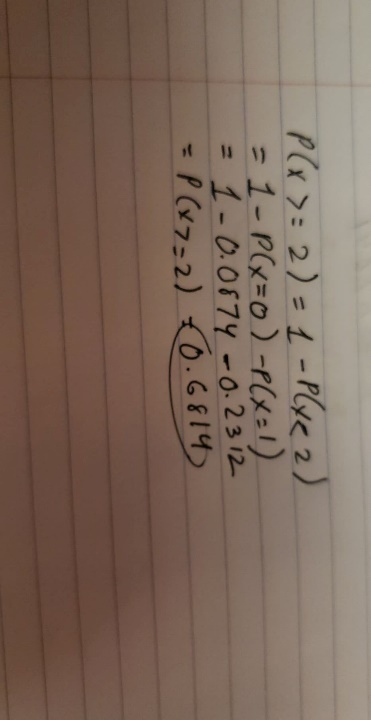 P(x >= 2) = 1 - P(x < 2)
= 1 - P(x=0) - P(x=1)
= 1 - 0.0874 - 0.2312
= P(x >= 2) = 0.6814